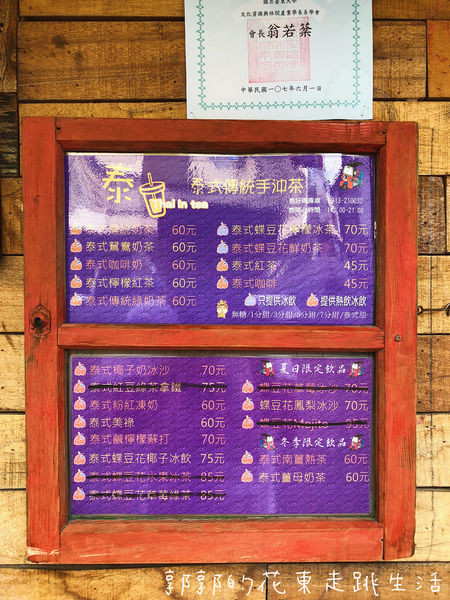 國立臺東大學
文化資源與休閒產業學系系學會
會長 翁若棻
中華民國一〇七年六月一日
泰 Thai in tea
泰式傳統手沖茶
泰式傳統奶茶 60元
泰式鴛鴦奶茶 60元
泰式咖啡奶 60元
泰式檸檬紅茶 60元
泰式傳統綠奶茶 60元
泰式蝶豆花檸檬冰茶 70元
泰式蝶豆花鮮奶茶 70元
泰式紅茶 45元
泰式咖啡 45元
只提供冰飲 提供熱飲冰飲
無糖/1分甜/3分甜/5分甜/7分甜/泰式甜
泰式椰子奶冰沙 70元
泰式紅豆綠茶拿鐵 75元
泰式粉紅凍奶 60元
泰式美祿 60元
泰式鹹檸檬蘇打 70元
泰式蝶豆花椰子冰飲 75元
泰式蝶豆花水果冰茶 85元
泰式蝶豆花草莓綠茶 85元
夏日限定飲品
蝶豆花草莓冰沙 70元
蝶豆花鳳梨冰沙 70元
蝶豆花Mojito 95元
冬季限定飲品
泰式南薑熱茶 60元
泰式薑母奶茶 60元
郭郭的花東走跳生活